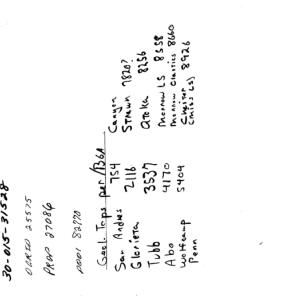 30-015-31528
OGRID 25575
PROP 27086
pool 82770
Geol. Tops per /BGA
San Andres 754
Glorieta 2116
Tubb 3537
Abo 4170
Wolfcamp 5404
Penn
Canyon
Strawn 7820?
Atoka 8256
Morrow LS 8558
Morrow Clastics 8660
Chester 8926
(Miss LS)